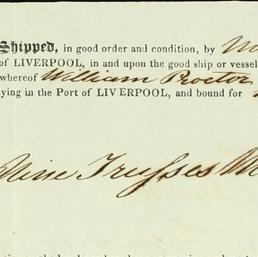 Shipped, in good order and condition, by
of LIVERPOOL, in and upon the good ship or vessel
whereof William Proctor
ying in the Port of LIVERPOOL, and bound for
Nine Trusses